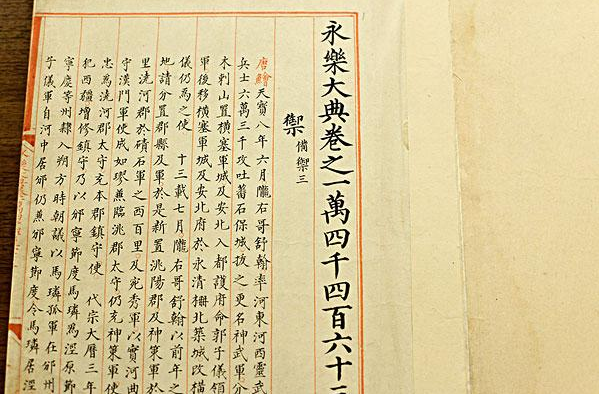 永樂大典卷之一萬四千四百六十
禦 備禦三
唐 天寶八年六月隴右哥舒翰率河東河西靈武
兵士六萬三千攻吐蕃石保城拔之更名神武軍分
木剌山置橫塞軍城及安北大都護府命郭子儀領
軍後移橫塞軍城及安北府於永清柵北築城改橫
儀仍爲之使 十三載七月隴右哥舒翰以前年之
地請分置郡縣及軍於是新置洮陽郡及神策軍於
里澆河郡於磧石軍之西百里及宛秀軍以實河曲
守漢門軍使成如璆兼臨洮郡太守仍充神策軍使
忠爲澆河郡太守充本郡鎮守使 代宗大曆三年
犯西疆增修鎮守乃以邠寧節度馬璘爲涇原節
寧慶等州隸入朔方時朝議以馬璘孤軍在邠州
子儀軍自河中居邠仍兼邠寧節度令馬璘居涇